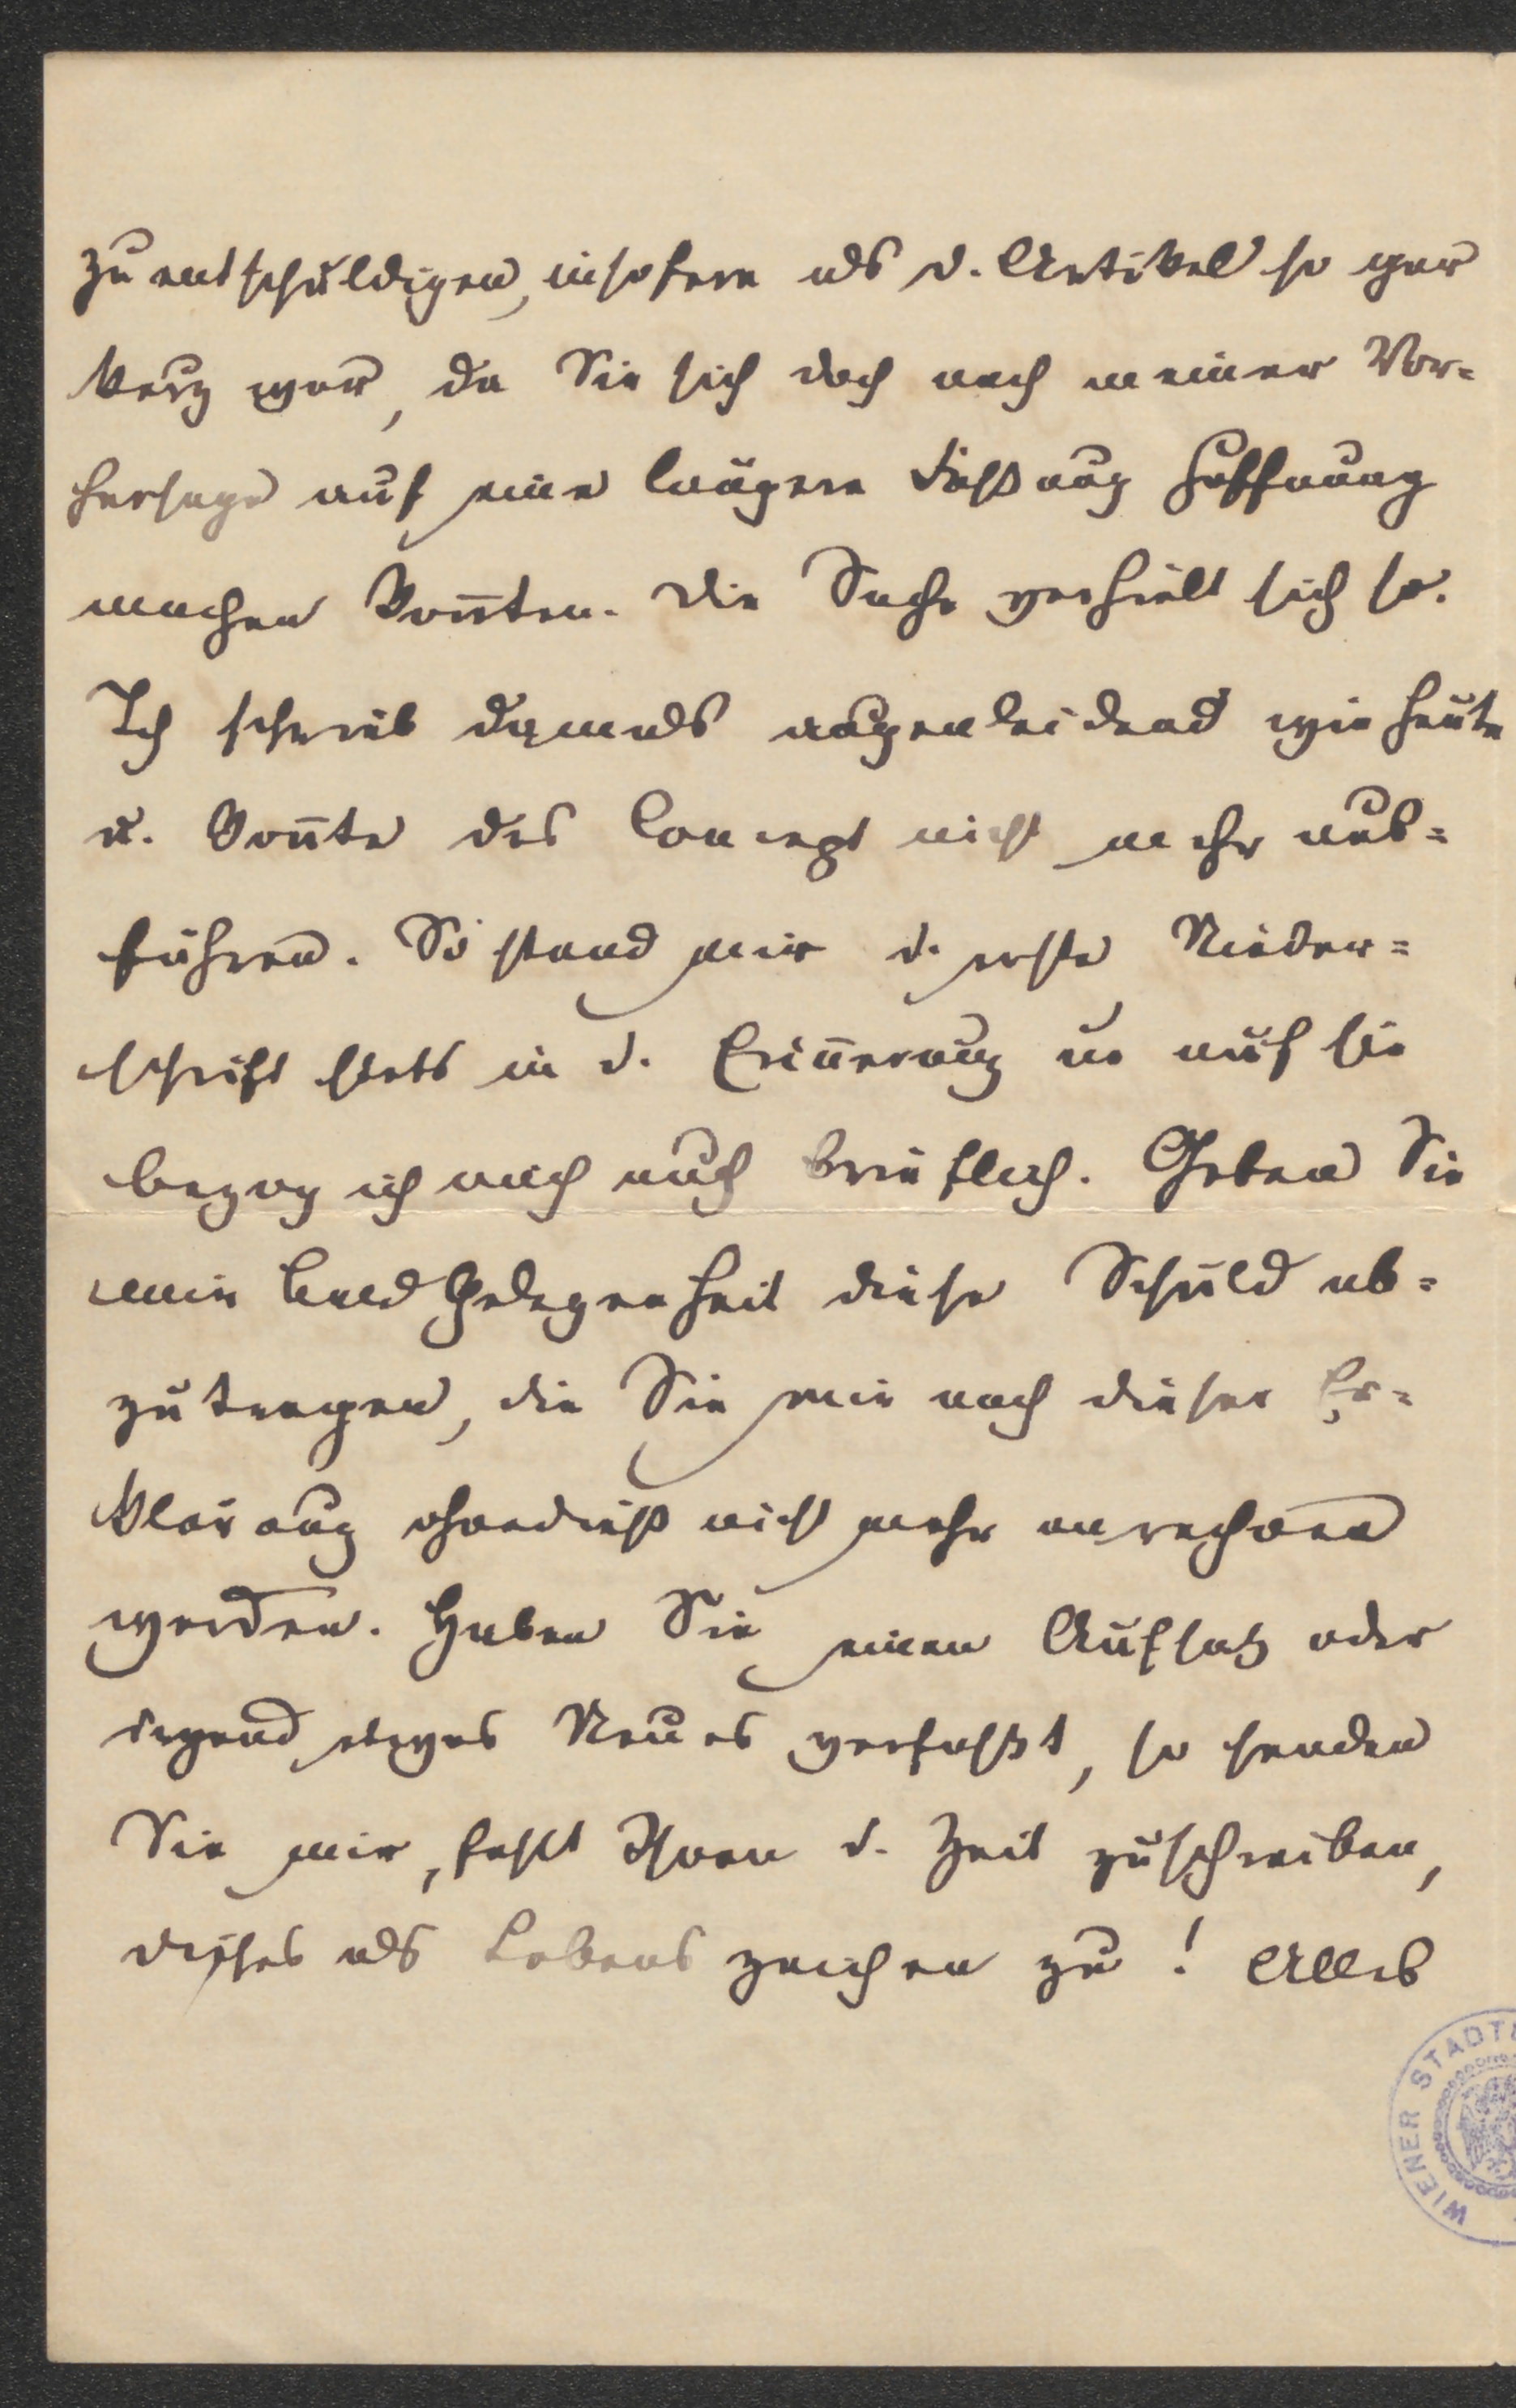 zu entschuldigen, insofern als d. Artikel so gar
kurz war, da Sie sich doch nach meiner Vor-
hersage auf eine längere Fassung Hoffnung
machen kon̅ten. Die Sache verhielt sich so.
Ich schrieb damals augenleidend wie heute
u. kon̅te das Concept nicht mehr aus-
führen. So stand mir d. erste Nieder-
schrift stets in d. Erin̅erung u. auf sie
bezog ich mich auch brieflich. Geben Sie
mir bald Gelegenheit diese Schuld ab-
zutragen, die Sie mir nach dieser Er-
klärung ohnedieß nicht mehr anrechnen
werden. Haben Sie einen Aufsatz oder
irgend etwas Neues verfaßt, so senden
Sie mir, fehlt Ihnen d. Zeit zu schreiben,
dieses als Lebenszeichen zu! Alles
WIENER STADT